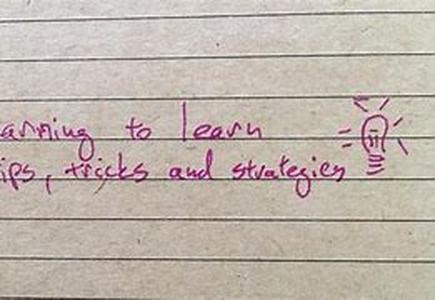 arning to learn
ips, tricks and strategies